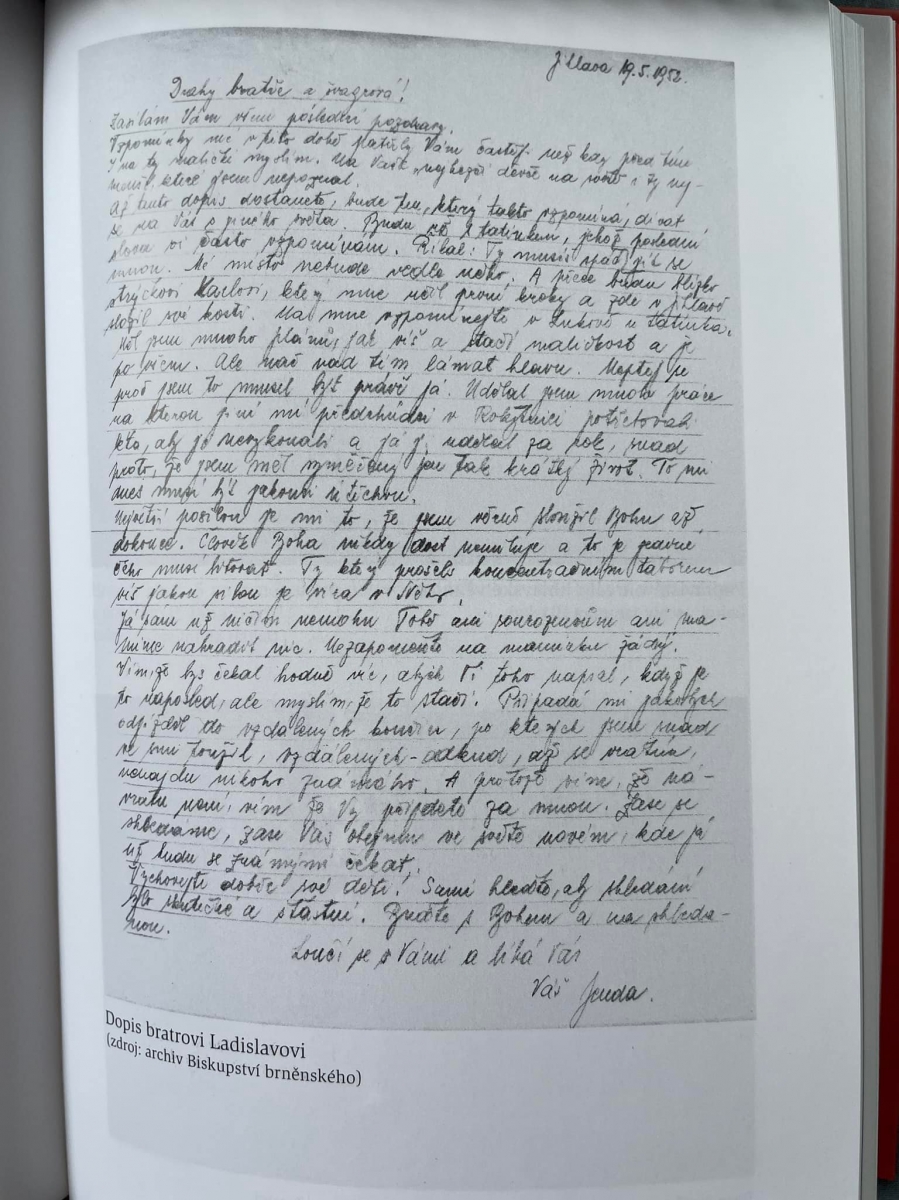 Jihlava 19.5.1952.
Drahý bratře a švagrová!
Zasílám Vám všem poslední pozdravy.
Vzpomínky mé v této době patřily Vám častěji než kdy před tím
I na ty maličké myslím. Na Vaše nejhezčí děvče na světě i ty nej-
menší, které jsem nepoznal.
Až tento dopis dostanete, bude ten, který takto vzpomíná, dívat
se na Vás s jiného světa. Budu už s tatínkem, jehož poslední
slova si často vzpomínám. Říkal: Ty musíš spát jít se
mnou. Mé místo nebude vedle něho. A přece budu blízko
strýčkovi Karlovi, který mne učil první kroky a zde v Jihlavě
složil své kosti. Na mne vzpomínejte v Lukově u tatínka.
Měl jsem mnoho plánů, jak víš a stačí maličkost a je
po všem. Ale nač nad tím lámat hlavu. Neptej se
proč jsem to musel být právě já. Udělal jsem mnoho práce
na kterou jiní mí předchůdci v Rokytnici potřebovali
léta, aby ji nevykonali a já ji udělal za rok, snad
proto, že jsem měl vyměřený jen tak krátký život. To mi
dnes musí být jakousi útěchou.
Největší posilou je mi to, že jsem věrně sloužil Bohu až
dokonce. Člověk Boha nikdy dost nemiluje a to je jediné
čeho musí litovat. Ty který prošels koncentračním táborem
víš jakou silou je víra v Něho.
Já sám už ničím nemohu Tobě ani sourozencům ani ma-
mince nahradit nic. Nezapomeňte na maminku žádný.
Vím, že bys čekal hodně víc, abych Ti toho napsal, když je
to naposled, ale myslím, že to stačí. Připadá mi jakobych
odjížděl do vzdálených končin, po kterých jsem snad
ve snu toužil, vzdálených - odkud, až se vrátím,
nenajdu nikoho známého. A protože vím, že ná-
vratu není, vím že Vy přijdete za mnou. Zase se
shledáme, zase Vás obejmu ve světě novém, kde já
už budu se známými čekat.
Vychovejte dobře své děti! Sami hleďte, aby shledání
bylo skutečné a šťastné. Buďte s Bohem a na shleda-
nou.
Loučí se s Vámi a líbá Vás
Váš Jenda.
Dopis bratrovi Ladislavovi
(zdroj: archiv Biskupství brněnského)